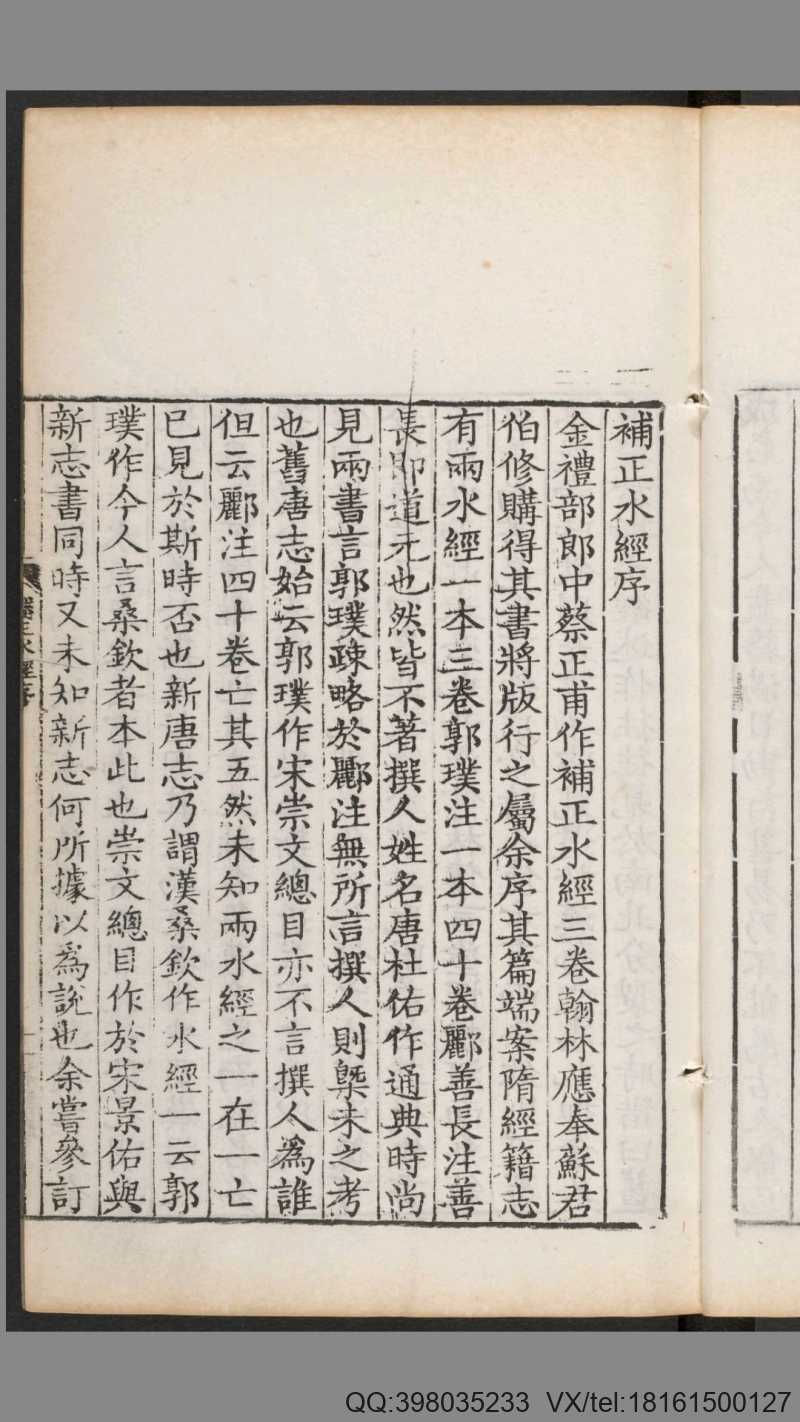 補正水經序
金禮部郎中蔡正甫作補正水經三卷翰林應奉蘇君
伯修購得其書將版行之屬余序其篇端案隋經籍志
有兩水經一本三卷郭璞注一本四十卷酈善長注善
長即道元也然皆不著撰人姓名唐杜佑作通典時尚
見兩書言郭璞疎略於酈注無所言撰人則槩未之考
也舊唐志始云郭璞作宋崇文總目亦不言撰人為誰
但云酈注四十卷亡其五然未知兩水經之一在一亡
已見於斯時否也新唐志乃謂漢桑欽作水經一云郭
璞作今人言桑欽者本此也崇文總目作於宋景佑與
新志書同時又未知新志何所據以為說也余嘗參訂
QQ:398035233 VX/tel:18161500127